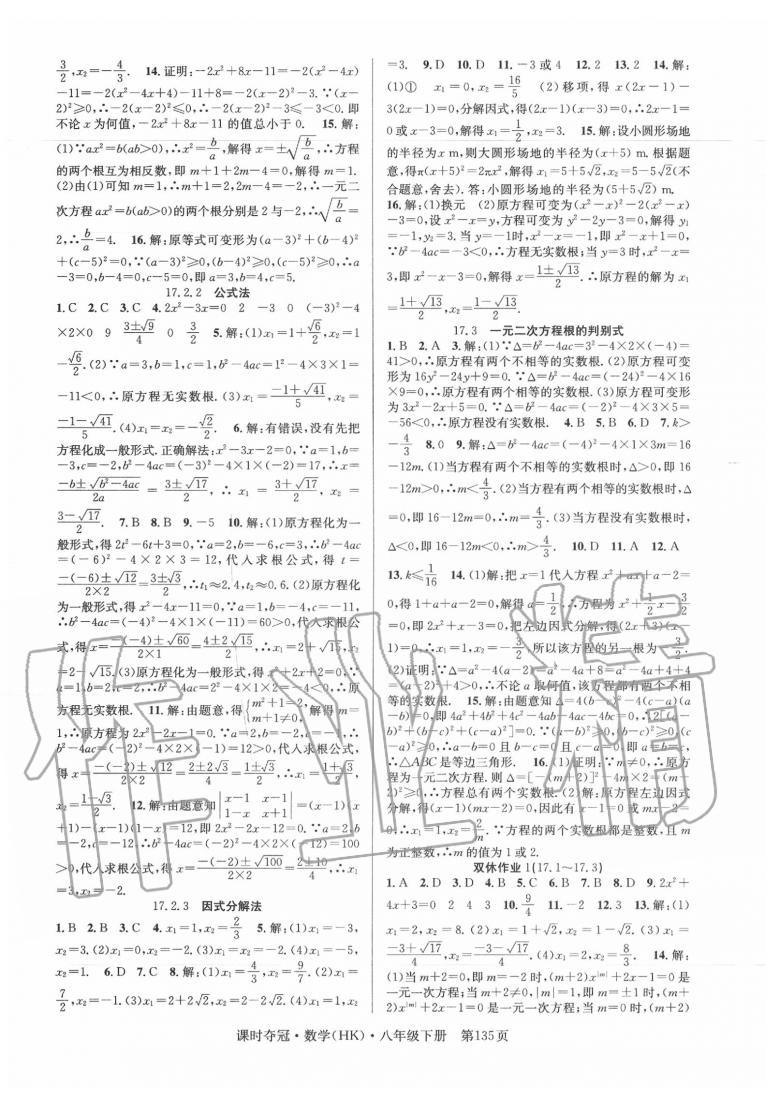 3/2, x₂=-4/3. 14.证明:-2x²+8x-11=-2(x²-4x)
-11=-2(x²-4x+4)-11+8=-2(x-2)²-3.∵(x-
2)²≥0,∴-2(x-2)²≤0,∴-2(x-2)²-3≤-3<0.即
不论x为何值,-2x²+8x-11的值总小于0. 15.解:
(1)∵ax²=b(ab>0),∴x²=b/a,解得x=±√(b/a),∴方程
的两个根互为相反数,即m+1+2m-4=0,解得m=1.
(2)由(1)可知m=1,∴m+1=2,2m-4=-2,∴一元二
次方程ax²=b(ab>0)的两个根分别是2与-2,∴√(b/a)=
2,∴b/a=4. 16.解:原等式可变形为(a-3)²+(b-4)²
+(c-5)²=0.∵(a-3)²≥0,(b-4)²≥0,(c-5)²≥0,∴a
-3=0,b-4=0,c-5=0,即a=3,b=4,c=5.
17.2.2 公式法
1.C 2.C 3.C 4.2x²-3x=0 2 -3 0 (-3)²-4
×2×0 9 (3±√9)/4 0 3/2 5.解:(1)x₁=1+√6/2,x₂=1
-√6/2.(2)∵a=3,b=1,c=1,b²-4ac=1²-4×3×1=
-11<0,∴原方程无实数根.(3)x₁=(-1+√41)/5,x₂=
(-1-√41)/5.(4)x₁=x₂=-√2/2. 6.解:有错误,没有先把
方程化成一般形式.正确解法:x²-3x-2=0.∵a=1,b=
-3,c=-2,b²-4ac=(-3)²-4×1×(-2)=17,∴x=
(-b±√(b²-4ac))/2a=(3±√17)/2,∴x₁=(3+√17)/2,x₂=
(3-√17)/2. 7.B 8.B 9.-5 10.解:(1)原方程化为一
般形式,得2t²-6t+3=0.∵a=2,b=-6,c=3,∴b²-4ac
=(-6)²-4×2×3=12,代入求根公式,得t=
(-(-6)±√12)/(2×2)=(3±√3)/2,∴t₁≈2.4,t₂≈0.6.(2)原方程化
为一般形式,得x²-4x-11=0.∵a=1,b=-4,c=-11,
∴b²-4ac=(-4)²-4×1×(-11)=60>0,代入求根公
式,得x=(-(-4)±√60)/(2×1)=(4±2√15)/2,∴x₁=2+√15,x₂=
2-√15.(3)原方程化为一般形式,得x²+2x+2=0.∵
a=1,b=2,c=2,∴b²-4ac=2²-4×1×2=-4<0,∴原
方程无实数根. 11.解:由题意,得{m²+1=2,m+1≠0,解得m=
1,∴原方程为2x²-2x-1=0.∵a=2,b=-2,c=-1,∴
b²-4ac=(-2)²-4×2×(-1)=12>0,代入求根公式,
得x=(-(-2)±√12)/(2×2)=(2±2√3)/4=(1±√3)/2,∴x₁=(1+√3)/2,
x₂=(1-√3)/2. 12.解:由题意知|x-1 x-1; 1-x x+1|=(x-1)(x
+1)-(x-1)(1-x)=12,即2x²-2x-12=0.∵a=2,b
=-2,c=-12,∴b²-4ac=(-2)²-4×2×(-12)=100
>0,代入求根公式,得x=(-(-2)±√100)/(2×2)=(2±10)/4,∴x₁
=3,x₂=-2.
17.2.3 因式分解法
1.B 2.C 3.C 4.x₁=1,x₂=2/3 5.解:(1)x₁=-3,
x₂=3.(2)x₁=0,x₂=-2.(3)x₁=x₂=-2.(4)x₁=-5,
x₂=1. 6.D 7.C 8.解:(1)x₁=4/3,x₂=9/7.(2)x₁=
7/2,x₂=-1.(3)x₁=2+2√2,x₂=2-2√2.(4)x₁=1,x₂
=3. 9.D 10.D 11.-3或4 12.2 13.2 14.解:
(1)① x₁=0,x₂=16/5 (2)移项,得x(2x-1)-
3(2x-1)=0,分解因式,得(2x-1)(x-3)=0,∴2x-1=
0或x-3=0,解得x₁=1/2,x₂=3. 15.解:设小圆形场地
的半径为x m,则大圆形场地的半径为(x+5) m.根据题
意,得π(x+5)²=2πx²,解得x₁=5+5√2,x₂=5-5√2(不
合题意,舍去).答:小圆形场地的半径为(5+5√2) m.
16.解:(1)换元 (2)原方程可变为(x²-x)²-2(x²-x)
-3=0,设x²-x=y,方程可变为y²-2y-3=0,解得y₁
=-1,y₂=3.当y=-1时,x²-x=-1,即x²-x+1=0.
∵b²-4ac=-3<0,∴方程无实数根;当y=3时,x²-x=
3,即x²-x-3=0,解得x=(1±√13)/2.∴原方程的解为x₁
=(1+√13)/2,x₂=(1-√13)/2.
17.3 一元二次方程根的判别式
1.B 2.A 3.解:(1)∵Δ=b²-4ac=3²-4×2×(-4)=
41>0,∴原方程有两个不相等的实数根.(2)原方程可变
形为16y²-24y+9=0.∵Δ=b²-4ac=(-24)²-4×16
×9=0,∴原方程有两个相等的实数根.(3)原方程可变形
为3x²-2x+5=0.∵Δ=b²-4ac=(-2)²-4×3×5=
-56<0,∴原方程没有实数根. 4.B 5.B 6.D 7.k>
-4/3 8.0 9.解:Δ=b²-4ac=(-4)²-4×1×3m=16
-12m.(1)当方程有两个不相等的实数根时,Δ>0,即16
-12m>0,∴m<4/3.(2)当方程有两个相等的实数根时,Δ
=0,即16-12m=0,∴m=4/3.(3)当方程没有实数根时,
Δ<0,即16-12m<0,∴m>4/3. 10.D 11.A 12.A
13.k≤1/16 14.(1)解:把x=1代入方程x²+ax+a-2=
0,得1+a+a-2=0,解得a=1/2,∴方程为x²+1/2x-3/2=
0,即2x²+x-3=0.把左边因式分解,得(2x+3)(x-
1)=0,∴x₁=1,x₂=-3/2,所以该方程的另一根为-3/2.
(2)证明:∵Δ=a²-4(a-2)=a²-4a+8=a²-4a+4+4=
(a-2)²+4>0,∴不论a取何值,该方程都有两个不相
等的实数根. 15.解:由题意知Δ=4(b-c)²-4(c-a)(a
-b)=0,即4a²+4b²+4c²-4ab-4ac-4bc=0,∴2[(a-
b)²+(b-c)²+(c-a)²]=0.∵(a-b)²≥0,(b-c)²≥0,(c
-a)²≥0,∴a-b=0且b-c=0且c-a=0,即a=b=c,
∴△ABC是等边三角形. 16.(1)证明:∵m≠0,∴原方
程为一元二次方程.则Δ=[-(m+2)]²-4m×2=(m-
2)²≥0,∴方程总有两个实数根.(2)解:原方程左边因式
分解,得(x-1)(mx-2)=0,因此有x-1=0或mx-2=
0,∴x₁=1,x₂=2/m.∵方程的两个实数根都是整数,且m
为正整数,∴m的值为1或2.
双休作业1(17.1~17.3)
1.A 2.D 3.D 4.C 5.C 6.B 7.B 8.D 9.2x²+
4x+3=0 2 4 3 10.9/4 11.-2 12.3 13.解:(1)
x₁=2,x₂=8.(2)x₁=1+√2,x₂=1-√2.(3)x₁=
(-3+√17)/4,x₂=(-3-√17)/4.(4)x₁=2,x₂=8/3. 14.解:
(1)当m+2=0,即m=-2时,(m+2)x^|m|+2x-1=0是
一元一次方程;当m+2≠0,|m|=1,即m=±1时,(m+
2)x^|m|+2x-1=0是一元一次方程;当m=0时,(m+2)
课时夺冠·数学(HK)·八年级下册 第135页
作业精